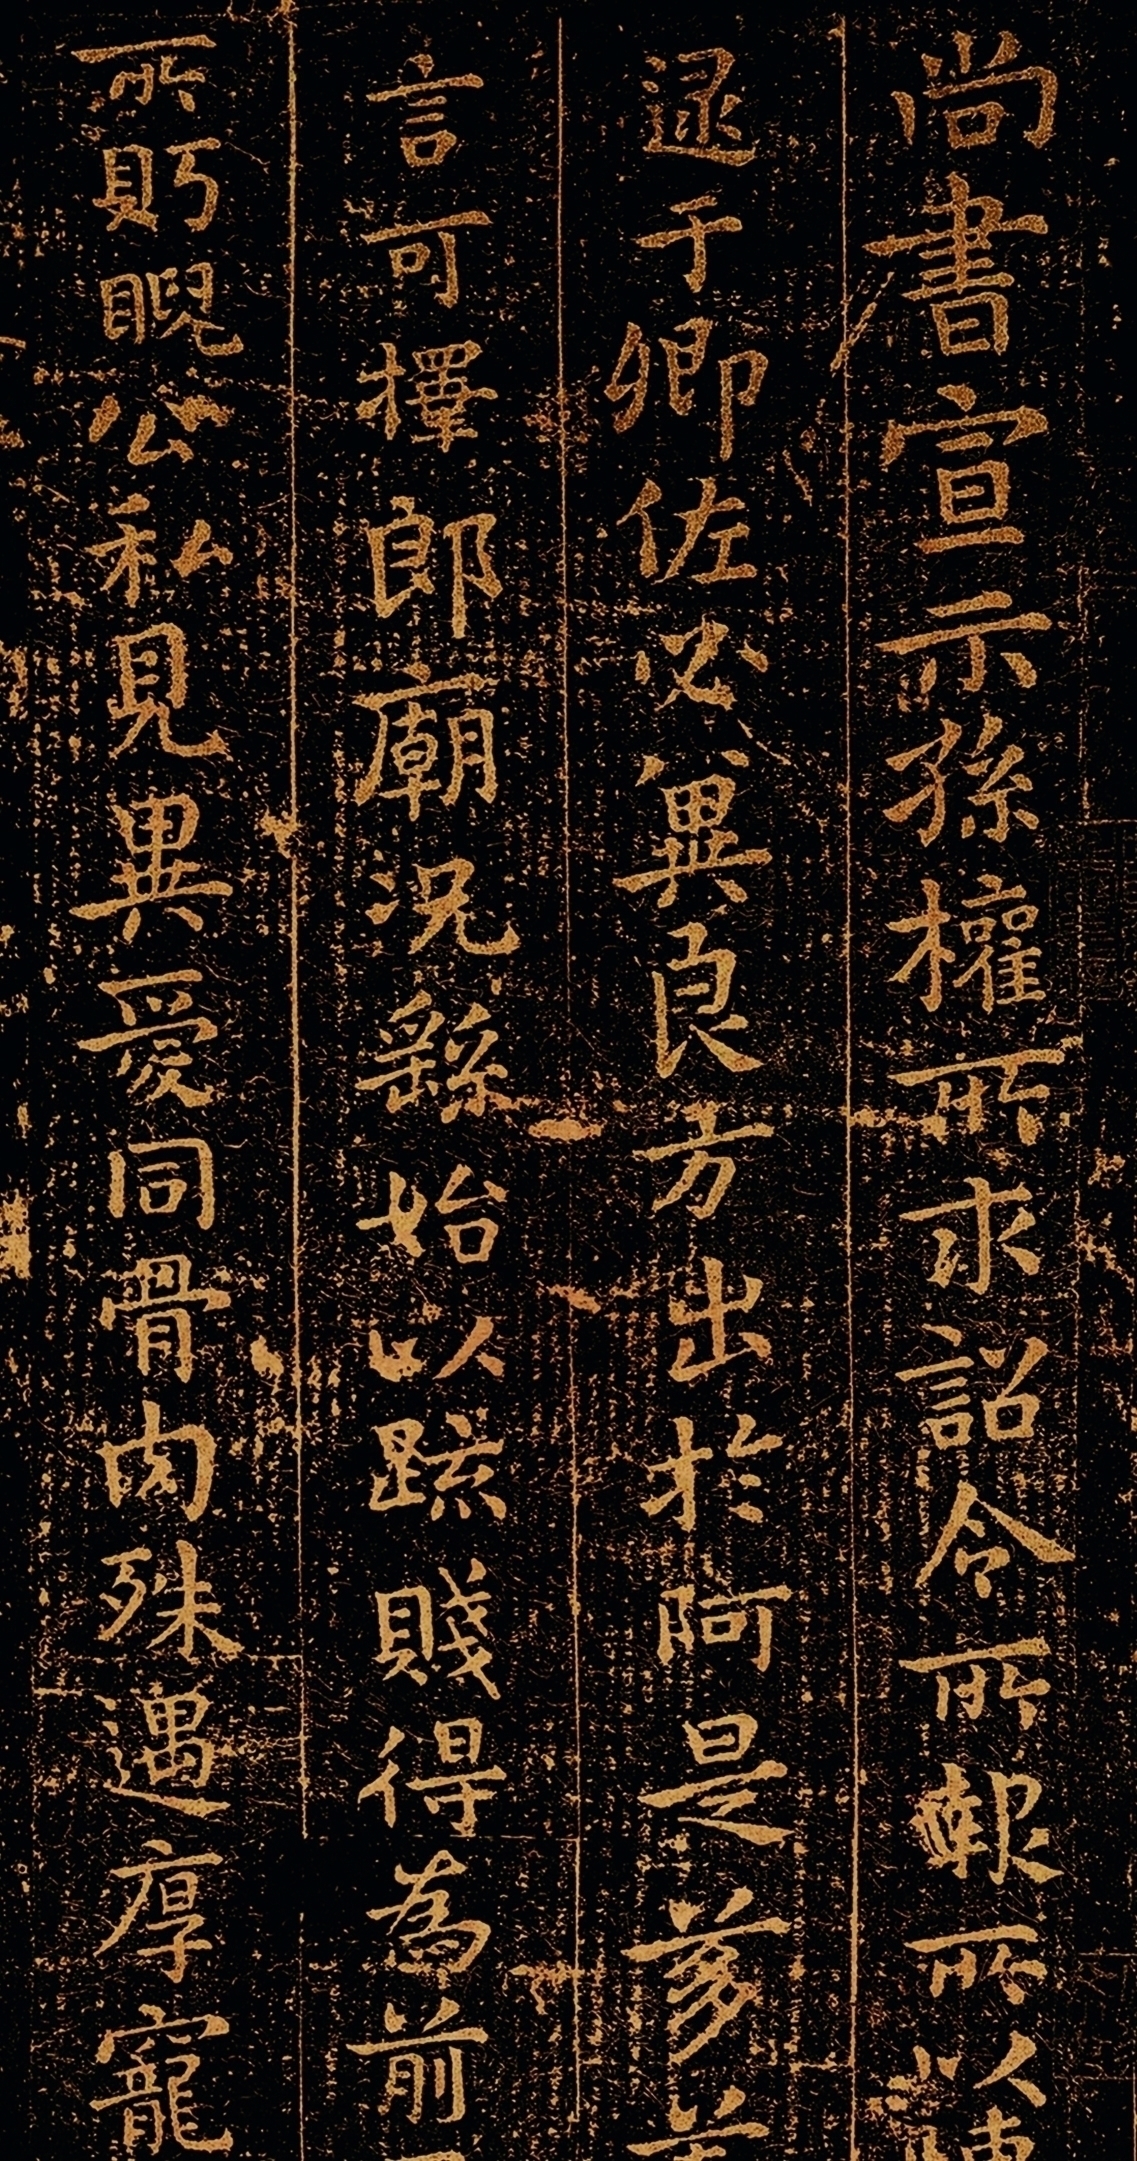 尚書宣示孫權所求詔令所報所以
逮于卿佐必異良方出於阿是芻
言可擇郎廟況繇始以疏賤得為前
所眄睨公私見異愛同骨肉殊遇厚寵